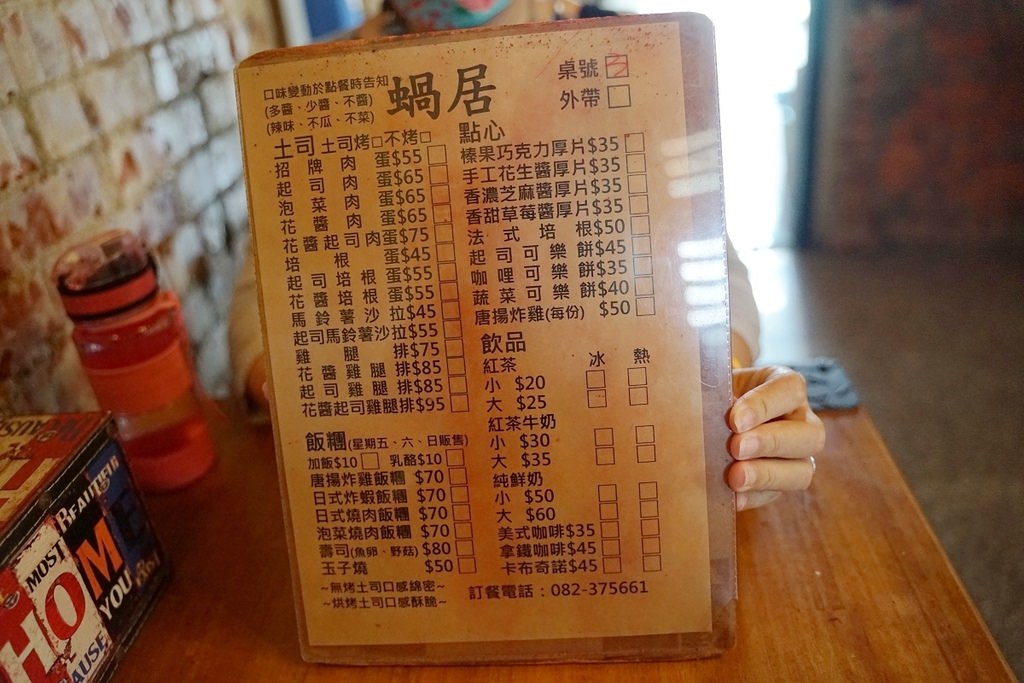 口味變動於點餐時告知
(多醬、少醬、不醬)
(辣味、不瓜、不菜)
蝸居
桌號 3
外帶
土司 土司烤□不烤□
招牌肉蛋$55
起司肉蛋$65
泡菜肉蛋$65
花醬肉蛋$65
花醬起司肉蛋$75
培根蛋$45
起司培根蛋$55
花醬培根蛋$55
馬鈴薯沙拉$45
起司馬鈴薯沙拉$55
雞腿排$75
花醬雞腿排$85
起司雞腿排$85
花醬起司雞腿排$95
飯糰(星期五、六、日販售)
加飯$10 乳酪$10
唐揚炸雞飯糰 $70
日式炸蝦飯糰 $70
日式燒肉飯糰 $70
泡菜燒肉飯糰 $70
壽司(魚卵、野菇) $80
玉子燒 $50
~無烤土司口感綿密~
~烘烤土司口感酥脆~
點心
榛果巧克力厚片$35
手工花生醬厚片$35
香濃芝麻醬厚片$35
香甜草莓醬厚片$35
法式培根$50
起司可樂餅$45
咖哩可樂餅$35
蔬菜可樂餅$40
唐揚炸雞(每份) $50
飲品
冰 熱
紅茶
小 $20
大 $25
紅茶牛奶
小 $30
大 $35
純鮮奶
小 $50
大 $60
美式咖啡$35
拿鐵咖啡$45
卡布奇諾$45
訂餐電話：082-375661
MOST
BEAUTIFUL
HOM
YOU